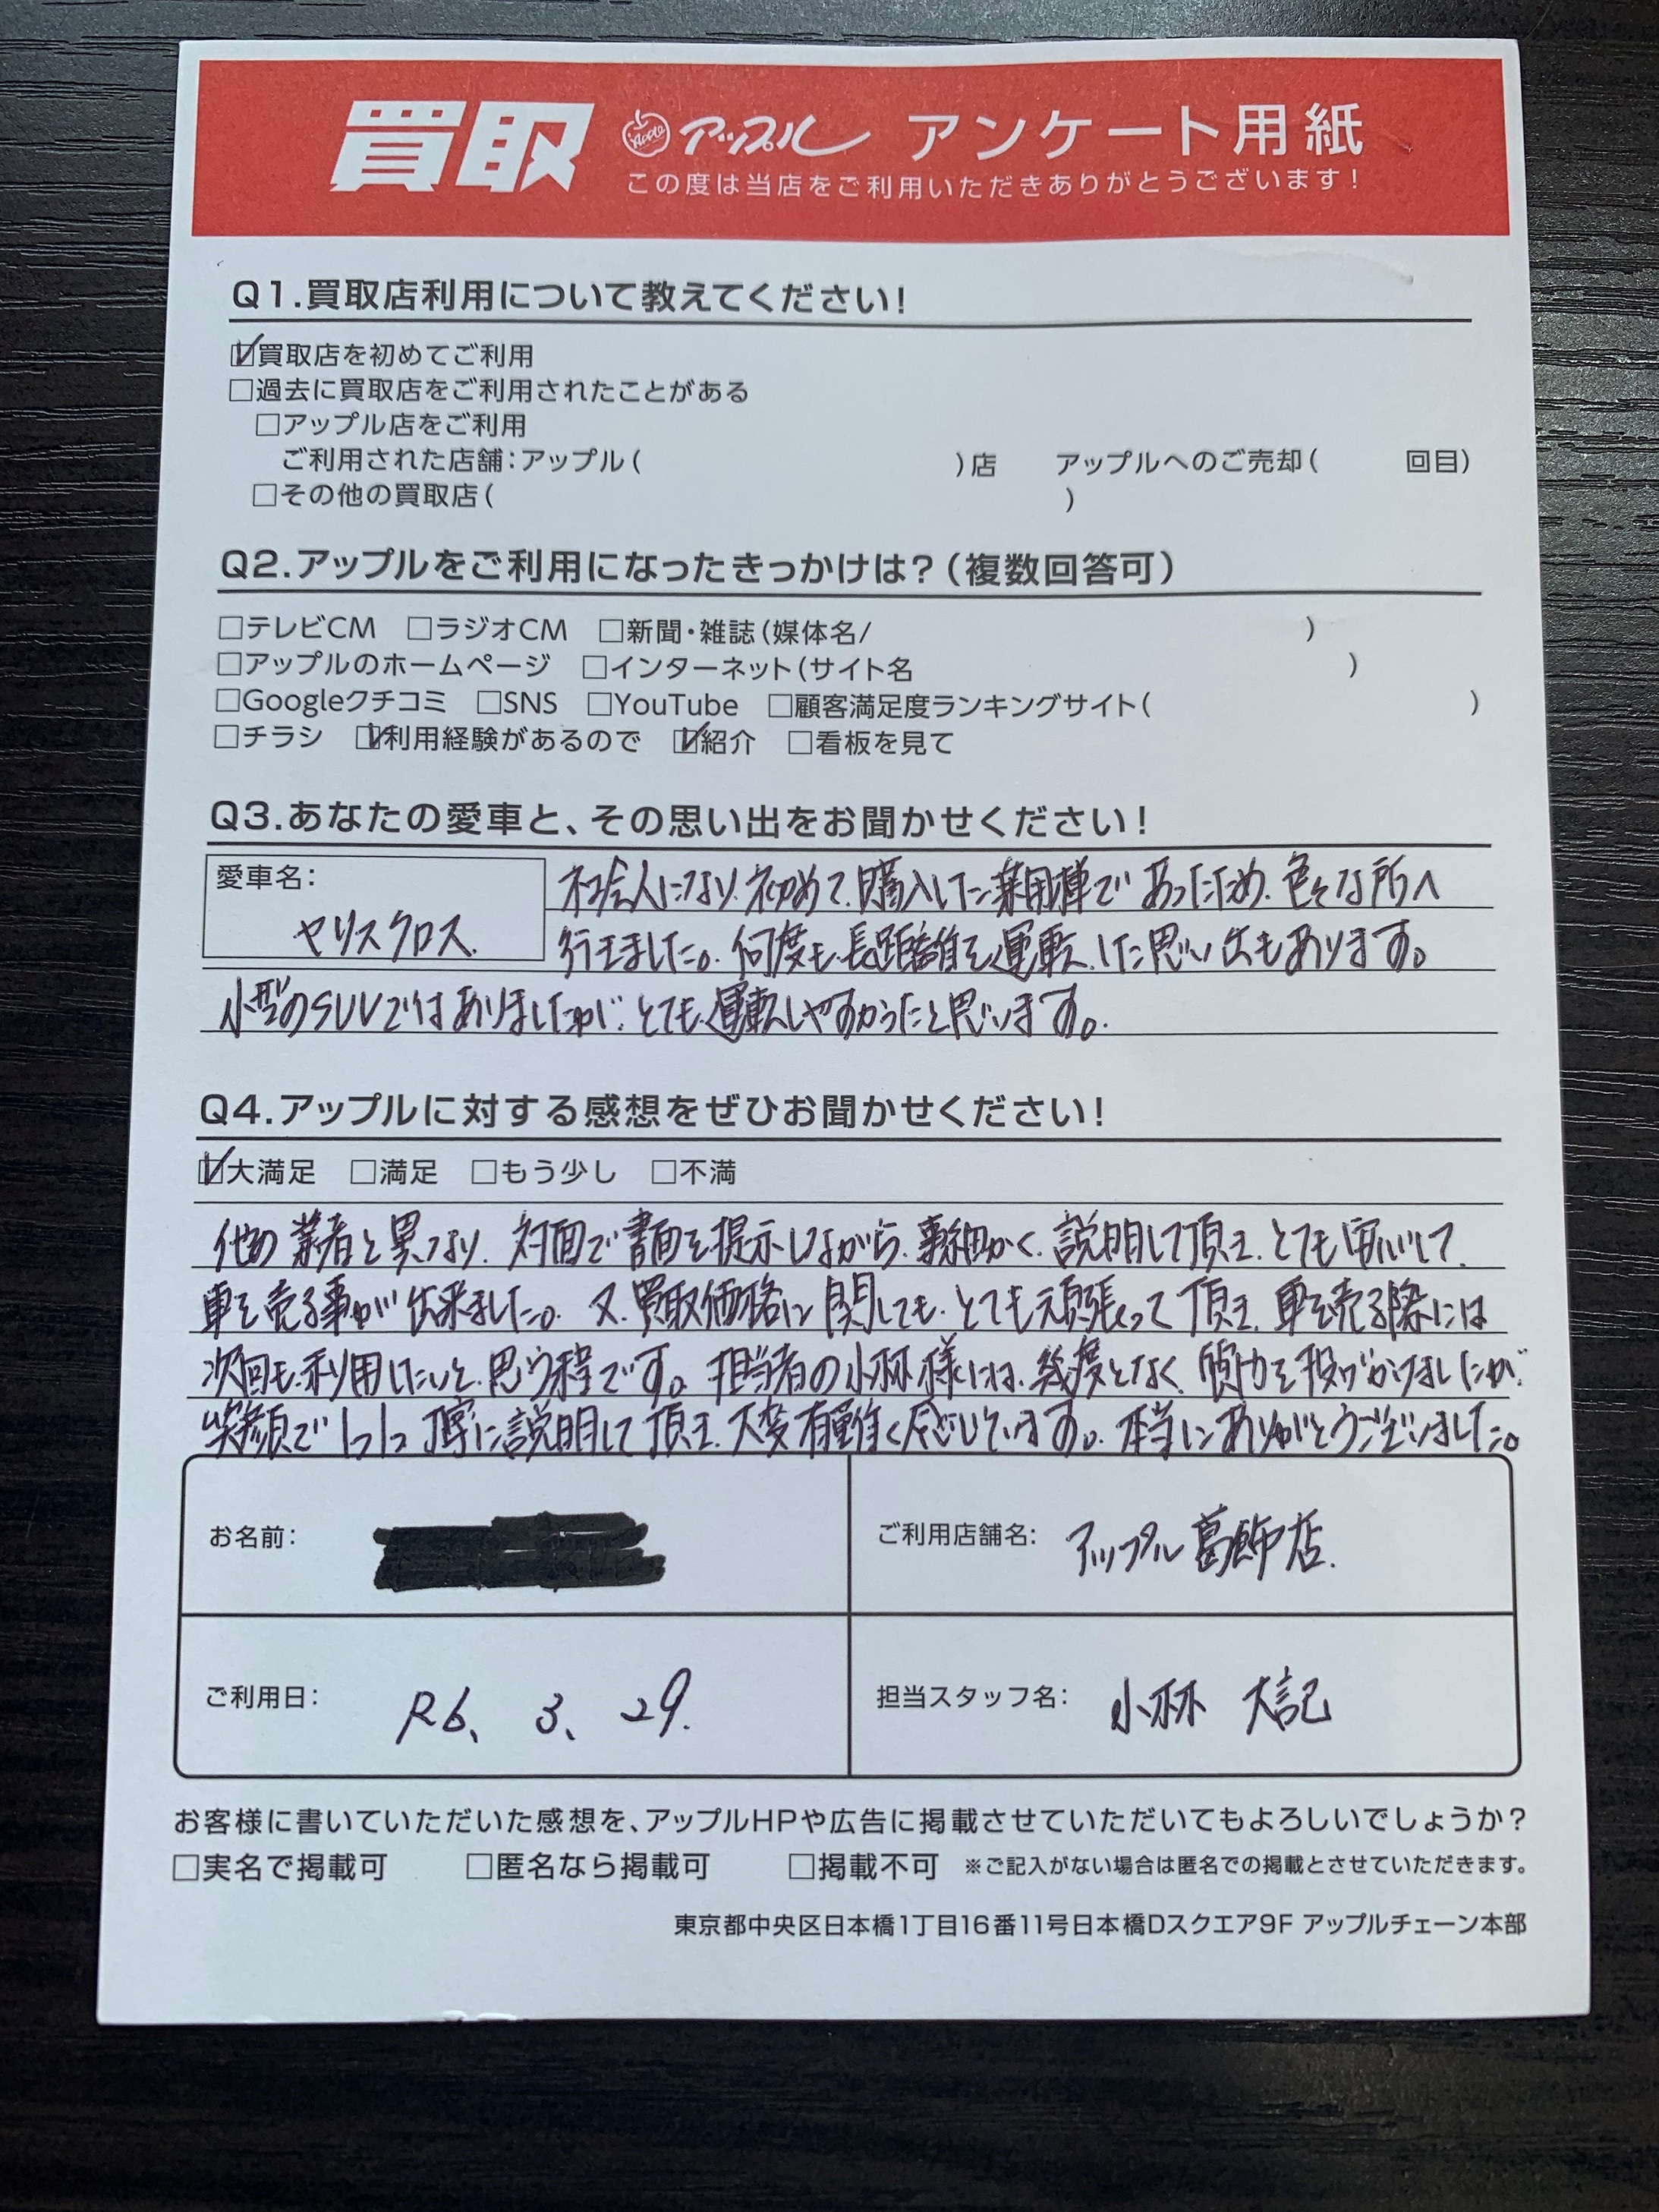 買取 Apple アップル アンケート用紙
この度は当店をご利用いただきありがとうございます!
Q1.買取店利用について教えてください!
☑買取店を初めてご利用
□過去に買取店をご利用されたことがある
□アップル店をご利用
ご利用された店舗:アップル( )店 アップルへのご売却( 回目)
□その他の買取店( )
Q2.アップルをご利用になったきっかけは?(複数回答可)
□テレビCM □ラジオCM □新聞・雑誌(媒体名/ )
□アップルのホームページ □インターネット(サイト名 )
□Googleクチコミ □SNS □YouTube □顧客満足度ランキングサイト( )
□チラシ ☑利用経験があるので ☑紹介 □看板を見て
Q3.あなたの愛車と、その思い出をお聞かせください!
愛車名:
ヤリスクロス.
社会人になり、初めて、購入した乗用車であったため、色々な所へ
行きました。何度も、長距離を運転、した思い出もあります。
小型のSUVではありましたが、とても運転しやすかったと思います。
Q4.アップルに対する感想をぜひお聞かせください!
☑大満足 □満足 □もう少し □不満
他の業者と異なり、対面で書面を提示しながら、事細かく、説明して頂き、とても安心して、
車を売る事が出来ました。又、買取価格に関しても、とても頑張って頂き、車を売る際には
次回も、利用したいと思う程です。担当者の小林様には、幾度となく、質問を投げかけましたが、
笑顔で1つ1つ丁寧に説明して頂き、大変有難く感じています。本当にありがとうございました。
お名前:
ご利用店舗名: アップル葛飾店.
ご利用日: R6、3、29.
担当スタッフ名: 小林 大記
お客様に書いていただいた感想を、アップルHPや広告に掲載させていただいてもよろしいでしょうか?
□実名で掲載可 □匿名なら掲載可 □掲載不可 ※ご記入がない場合は匿名での掲載とさせていただきます。
東京都中央区日本橋1丁目16番11号日本橋Dスクエア9F アップルチェーン本部